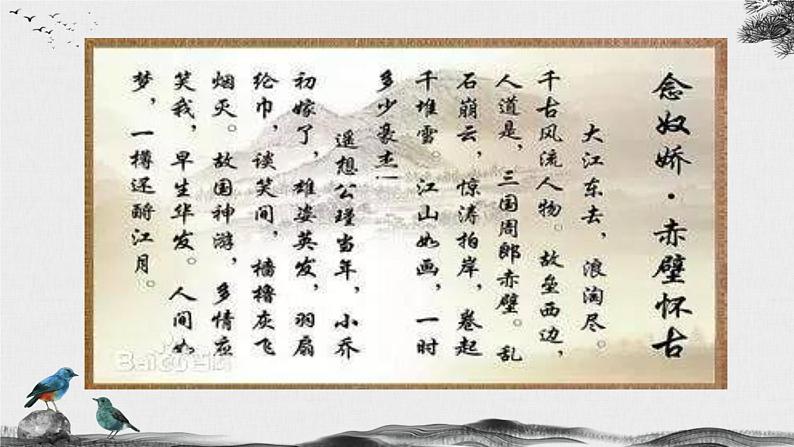 念奴娇·赤壁怀古
大江东去，浪淘尽。
千古风流人物。故垒西边，
人道是，三国周郎赤壁。乱
石崩云，惊涛拍岸，卷起
千堆雪。江山如画，一时
多少豪杰！
遥想公瑾当年，小乔
初嫁了，雄姿英发，羽扇
纶巾，谈笑间，樯橹灰飞
烟灭。故国神游，多情应
笑我，早生华发。人间如
梦，一樽还酹江月。
Baidu百科